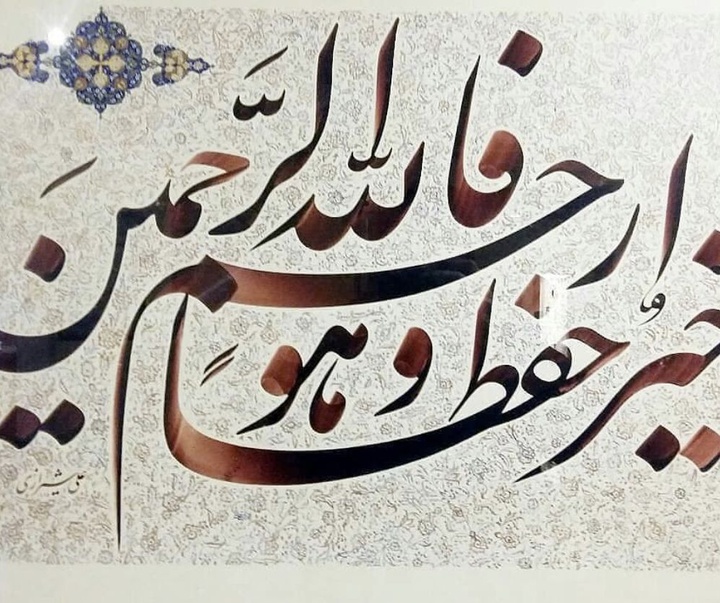 فاللّه خیر حفظاً و هو ارحم الرّحمین
علی شیرازی